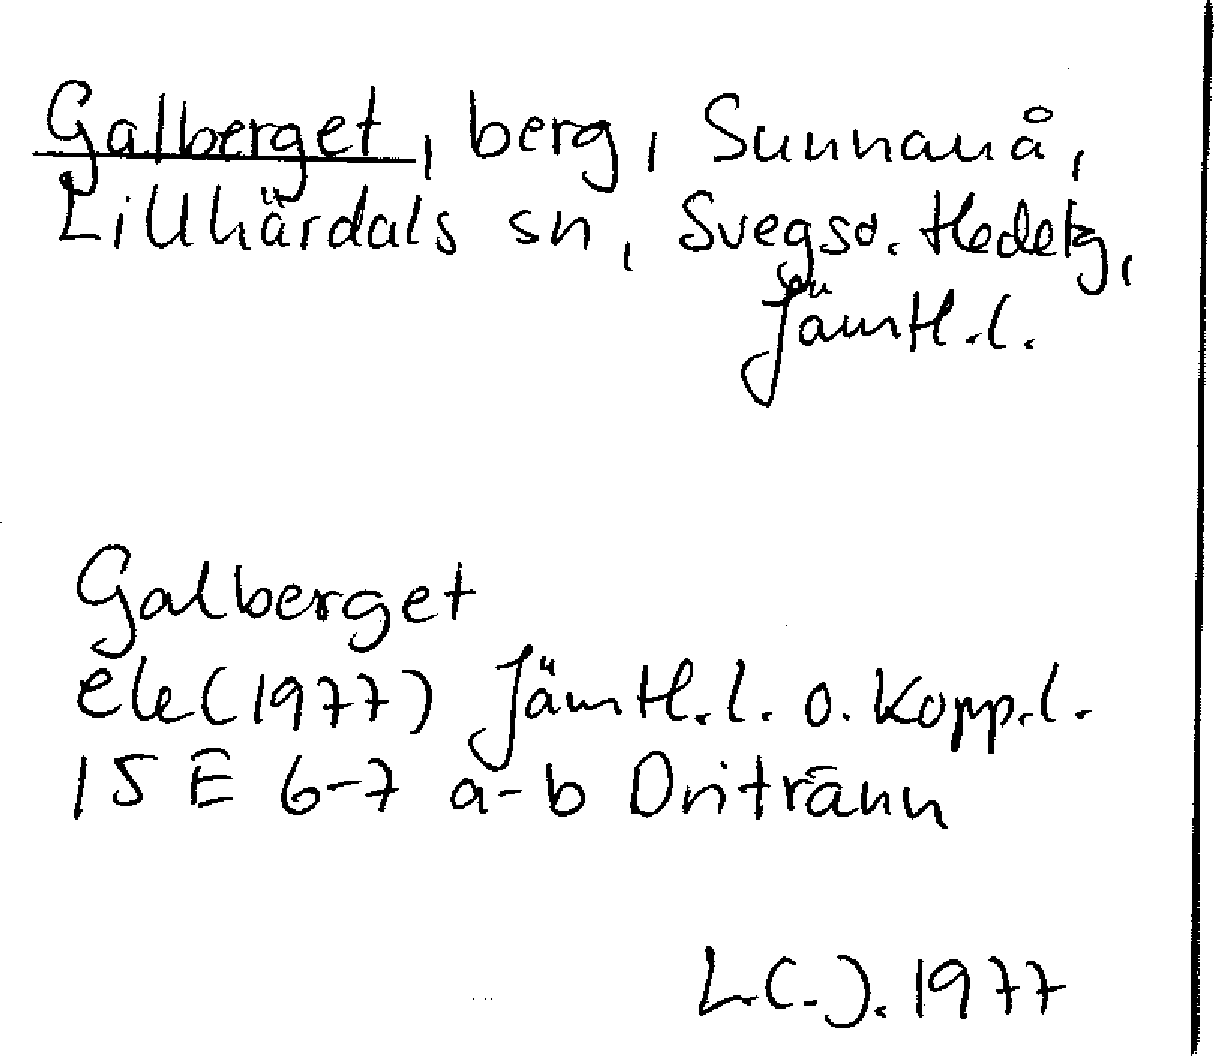 Galberget, berg, Sunnanå,
Lillhärdals sn, Svegs o. Hedetg,
Jämtl.l.
Galberget
ek (1977) Jämtl.l. o. Kopp.l.
15 E 6-7 a-b Dritränn
L.C.J. 1977